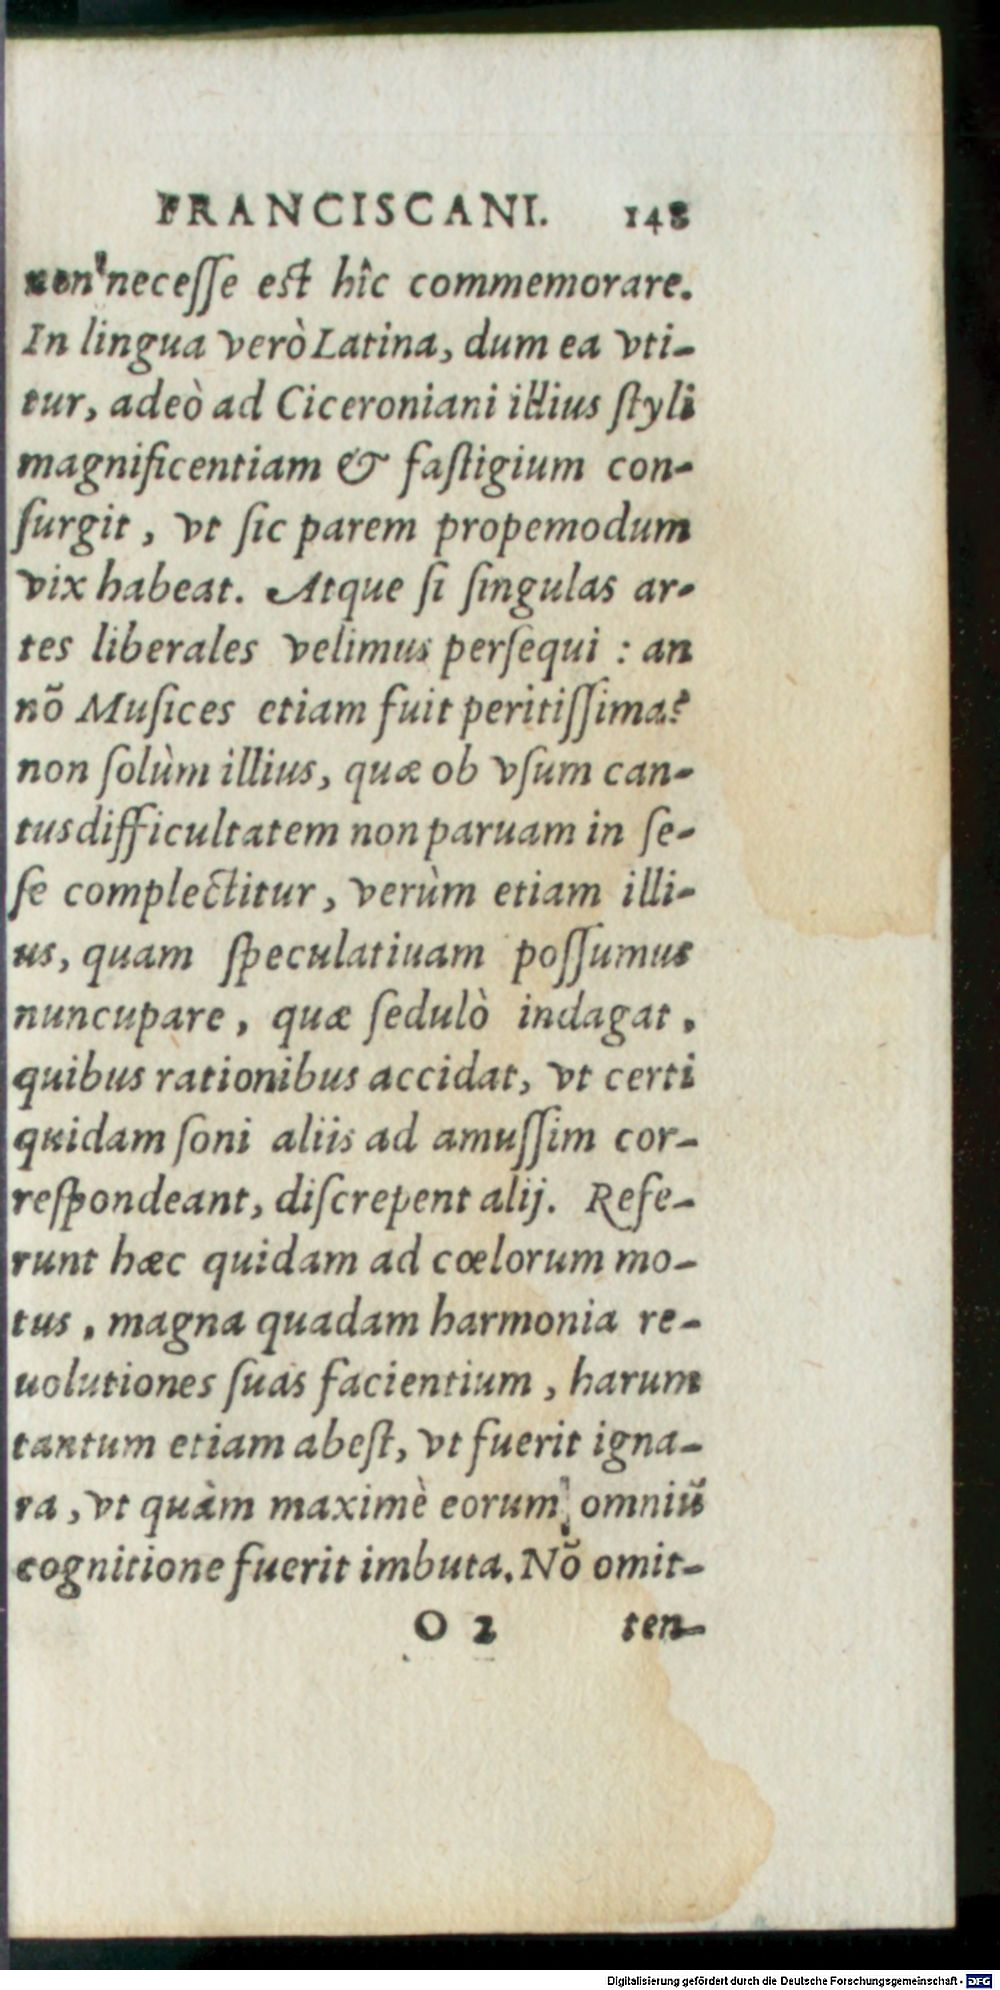 FRANCISCANI. 148
non necesſe est hîc commemorare.
In lingua verò Latina, dum ea vti-
tur, adeò ad Ciceroniani illius ſtyli
magnificentiam & faſtigium con-
ſurgit, vt ſic parem propemodum
vix habeat. Atque ſi ſingulas ar-
tes liberales velimus perſequi: an
nõ Muſices etiam fuit peritiſſima?
non ſolùm illius, quæ ob vſum can-
tus difficultatem non paruam in ſe-
ſe complectitur, verùm etiam illi-
us, quam ſpeculatiuam poſſumus
nuncupare, quæ ſedulò indagat,
quibus rationibus accidat, vt certi
quidam ſoni aliis ad amuſſim cor-
reſpondeant, diſcrepent alij. Refe-
runt hæc quidam ad cœlorum mo-
tus, magna quadam harmonia re-
uolutiones ſuas facientium, harum
tantum etiam abeſt, vt fuerit igna-
ra, vt quàm maximè eorum omniũ
cognitione fuerit imbuta. Nõ omit-
O 2 ten-
Digitalisierung gefördert durch die Deutsche Forschungsgemeinschaft - DFG